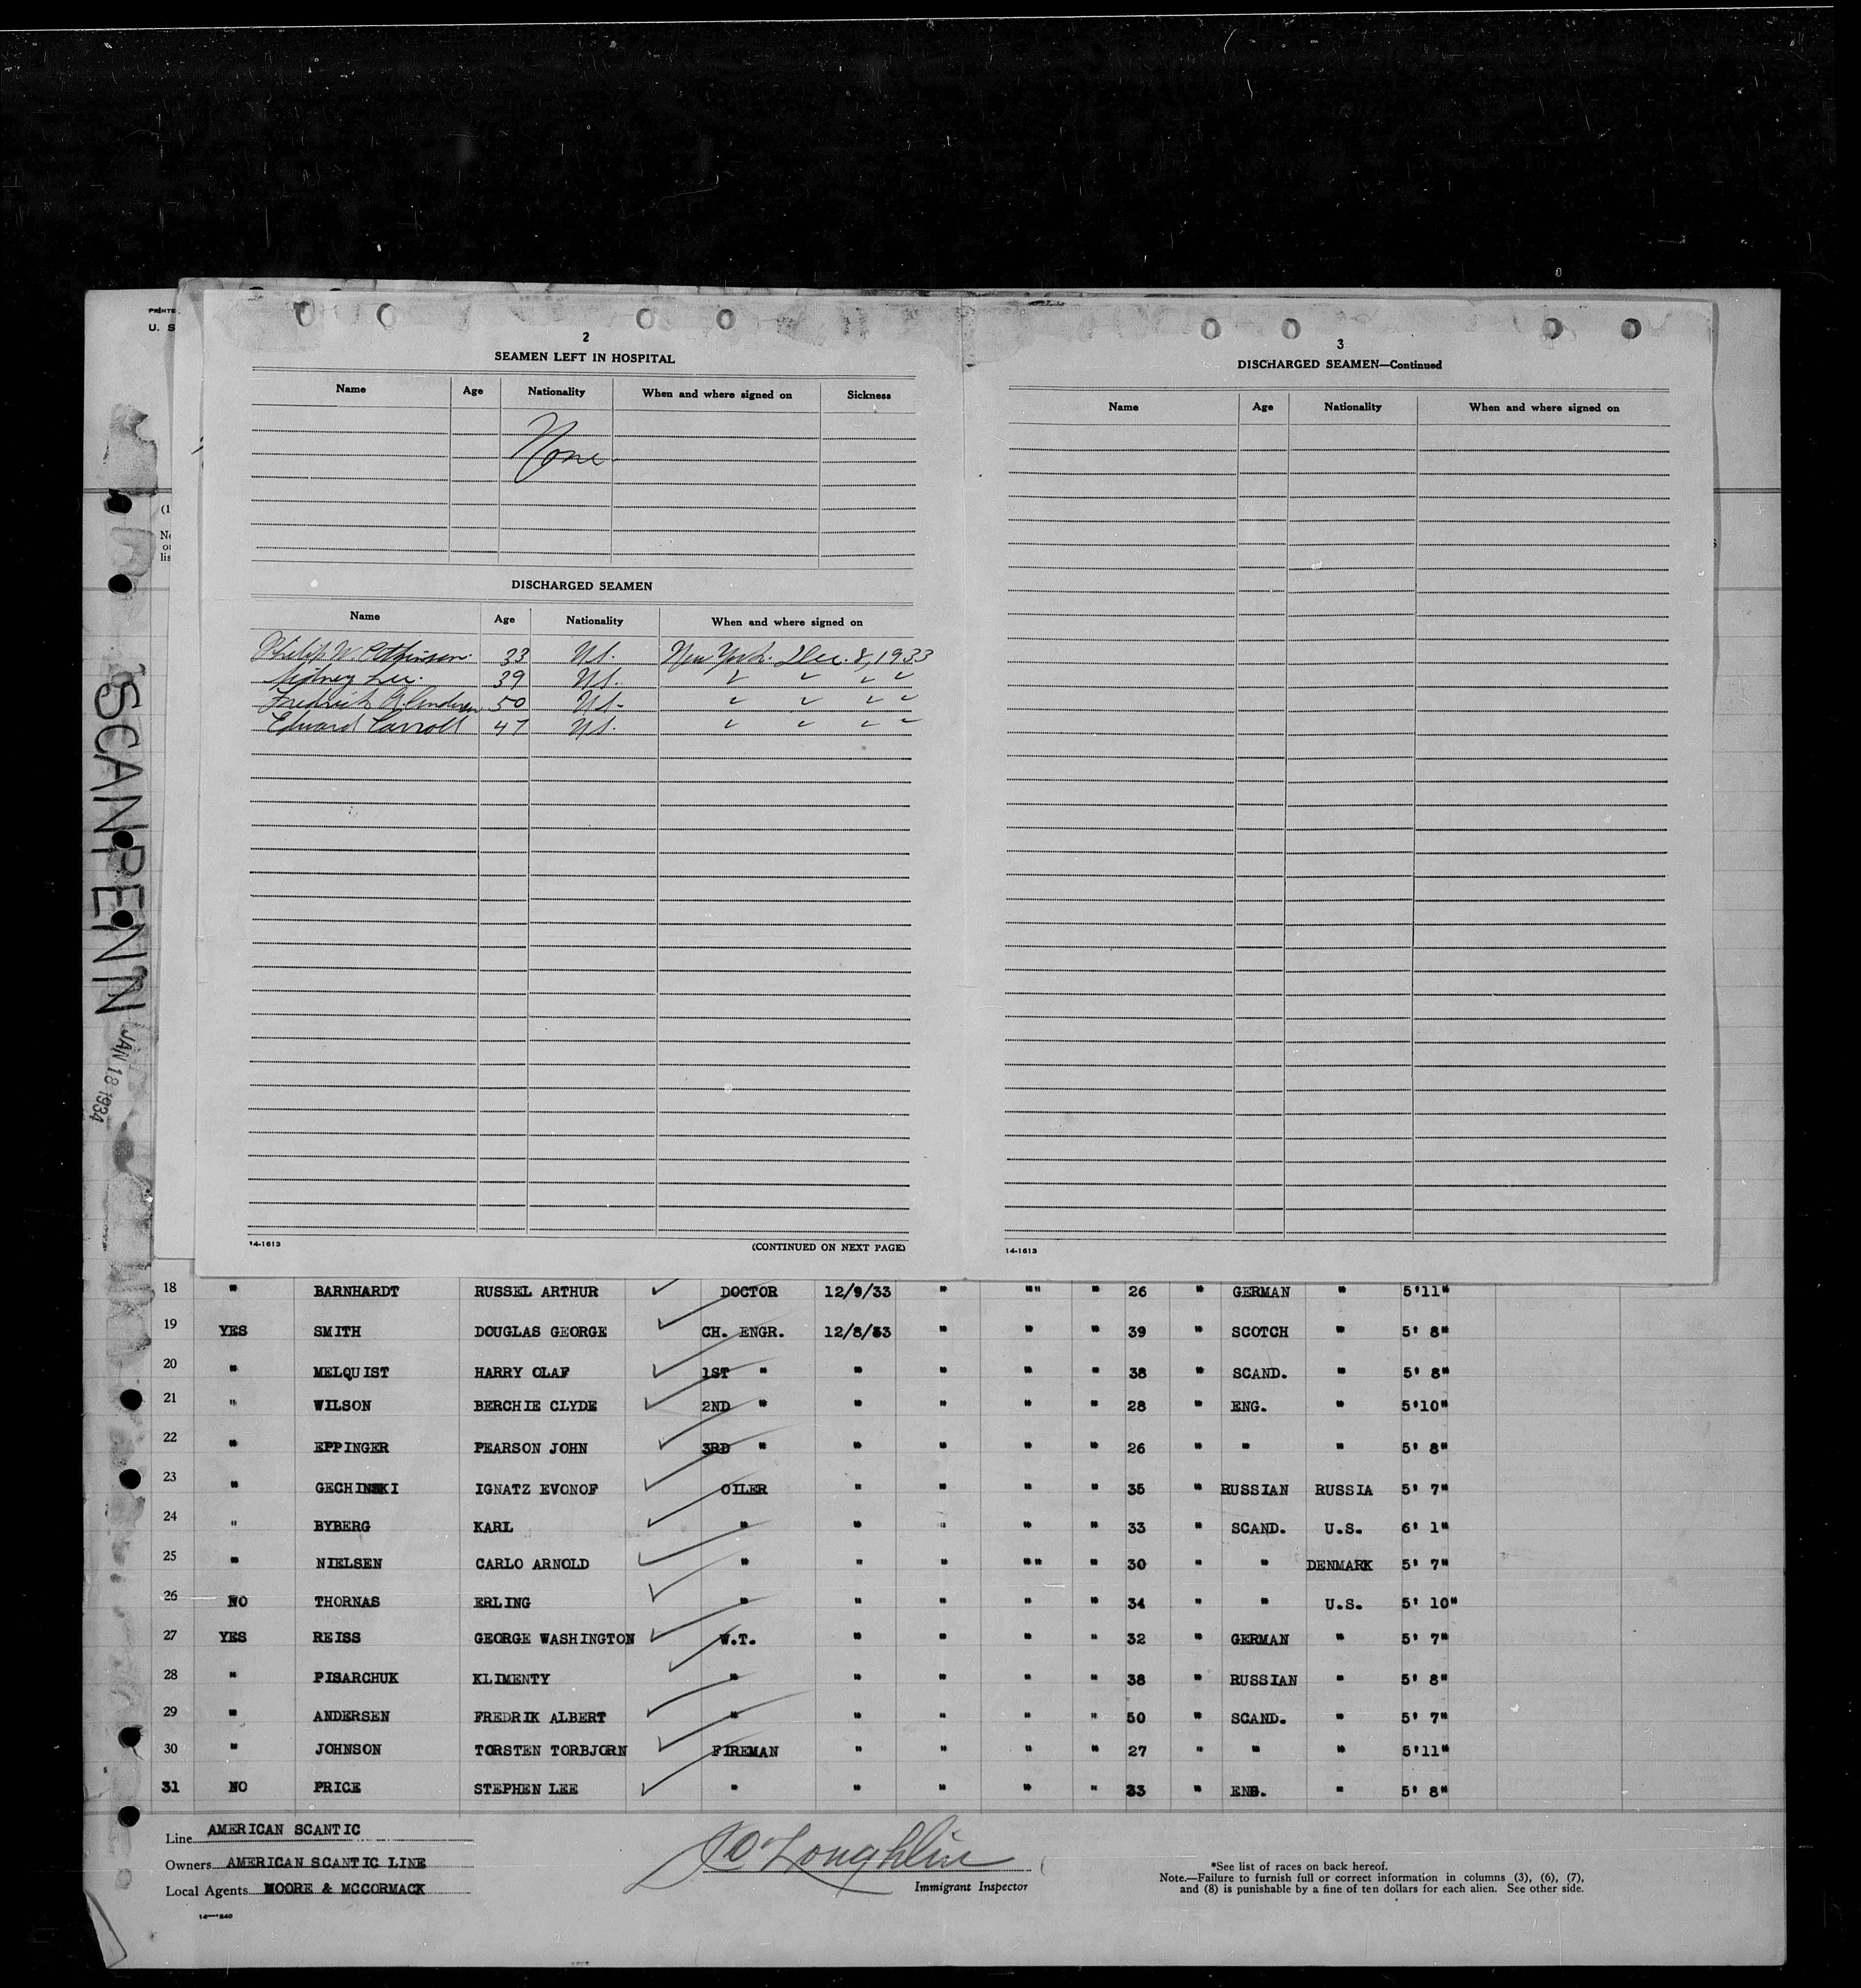 PRINTE
U. S
(1
No
or
lis
SCANPENN
JAN 18 1934
2
SEAMEN LEFT IN HOSPITAL
Name Age Nationality When and where signed on Sickness
None
DISCHARGED SEAMEN
Name Age Nationality When and where signed on
Philip W. 33 U.S. New York. Dec. 8, 1933
Sidney Lee. 39 U.S. " " " "
Fredrick A. Andersen 50 U.S. " " " "
Edward Carroll 47 U.S. " " " "
14-1613 (CONTINUED ON NEXT PAGE)
3
DISCHARGED SEAMEN—Continued
Name Age Nationality When and where signed on
14-1613
18 " BARNHARDT RUSSEL ARTHUR DOCTOR 12/9/33 " "" " 26 " GERMAN " 5'11"
19 YES SMITH DOUGLAS GEORGE CH. ENGR. 12/8/33 " " " 39 " SCOTCH " 5' 8"
20 " MELQUIST HARRY OLAF 1ST " " " " " 38 " SCAND. " 5' 8"
21 " WILSON BERCHIE CLYDE 2ND " " " " " 28 " ENG. " 5'10"
22 " EPPINGER PEARSON JOHN 3RD " " " " " 26 " " " 5' 8"
23 " GECHINSKI IGNATZ EVONOF OILER " " " " 35 " RUSSIAN RUSSIA 5' 7"
24 " BYBERG KARL " " " " " 33 " SCAND. U.S. 6' 1"
25 " NIELSEN CARLO ARNOLD " " " "" " 30 " " DENMARK 5' 7"
26 NO THORNAS ERLING " " " " " 34 " " U.S. 5' 10"
27 YES REISS GEORGE WASHINGTON W.T. " " " " 32 " GERMAN " 5' 7"
28 " PISARCHUK KLIMENTY " " " " " 38 " RUSSIAN " 5' 8"
29 " ANDERSEN FREDRIK ALBERT " " " " " 50 " SCAND. " 5' 7"
30 " JOHNSON TORSTEN TORBJORN FIREMAN " " " " 27 " " " 5'11"
31 NO PRICE STEPHEN LEE " " " " " 23 " ENG. " 5' 8"
Line AMERICAN SCANTIC
Owners AMERICAN SCANTIC LINE
Local Agents MOORE & MCCORMACK
14—1240
O'Loughlin
Immigrant Inspector
*See list of races on back hereof.
Note.—Failure to furnish full or correct information in columns (3), (6), (7),
and (8) is punishable by a fine of ten dollars for each alien. See other side.